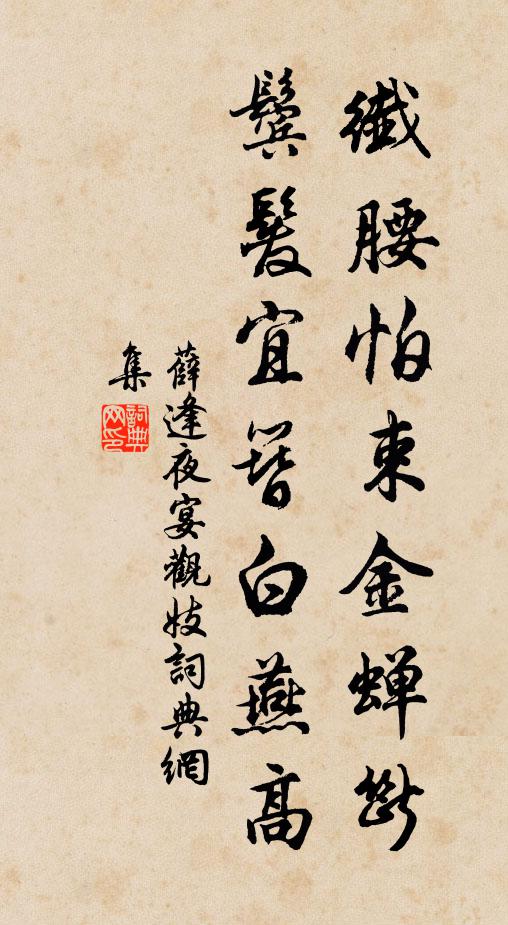 纖腰怕束金蝉斷
鬢髮宜簪白燕高
薛逢夜宴觀妓詞典網
集
詞典网印